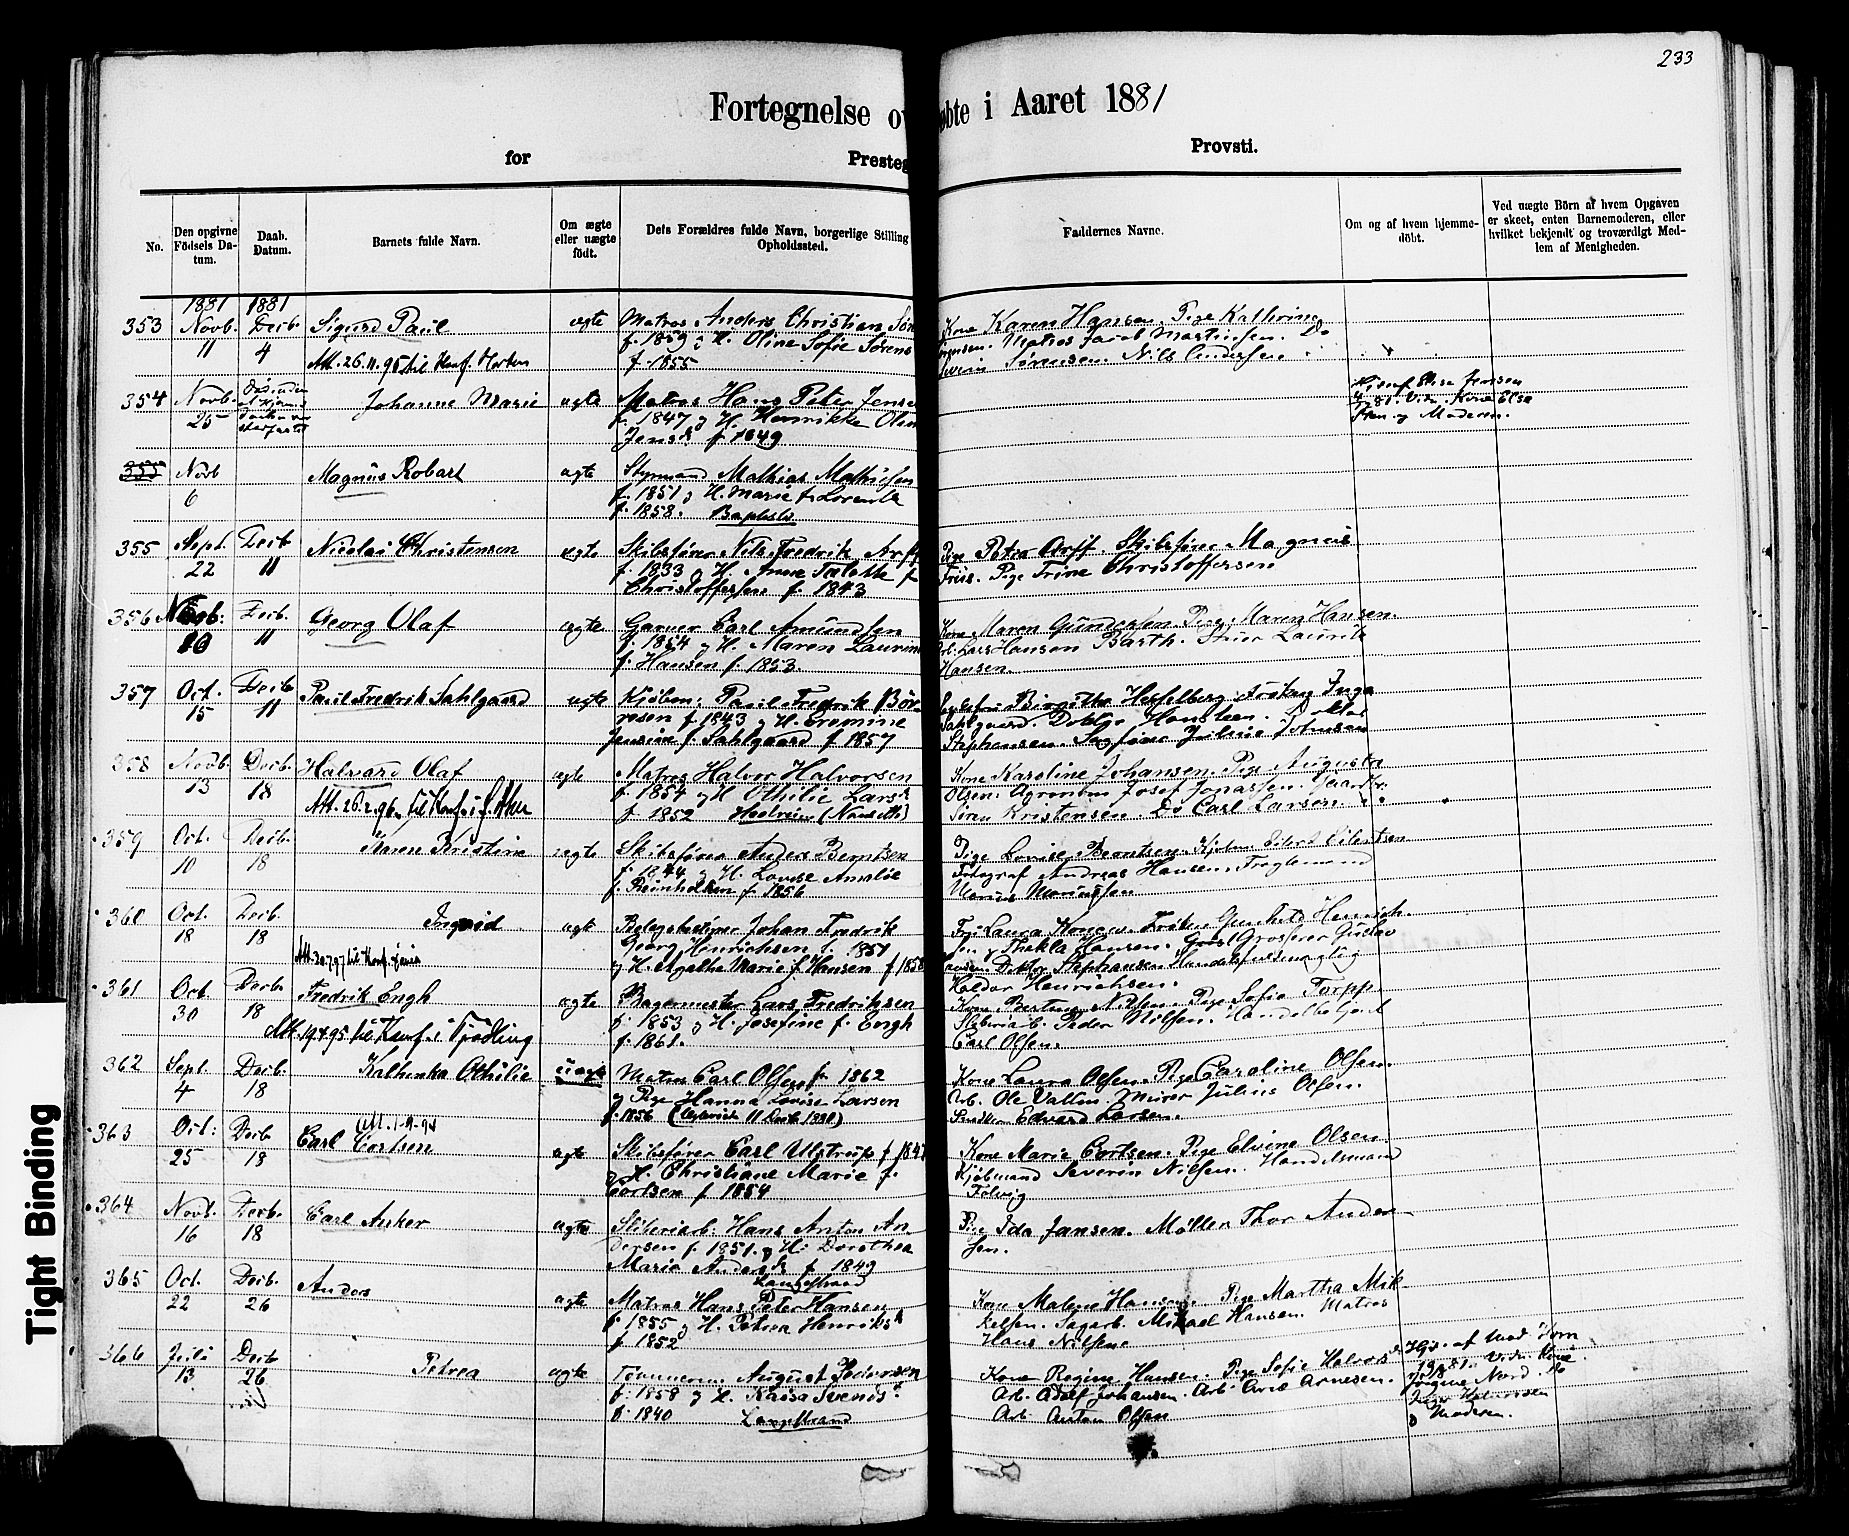 233
Fortegnelse ov
øbte i Aaret 1881
for
Presteg
Provsti.
No.
Den opgivne Födsels Da-
tum.
Daab.
Datum.
Barnets fulde Navn.
Om ægte
eller uægte
födt.
Dets Forældres fulde Navn, borgerlige Stilling
Opholdssted.
Faddernes Navne.
Om og af hvem hjemme-
döbt.
Ved uægte Börn af hvem Opgaven
er skeet, enten Barnemoderen, eller
hvilket bekjendt og troværdigt Med-
lem af Menigheden.
1881 1881
353 Novb. 11 Decb. 4 Sigurd Paul
Att. 26.11.95 til Konf. Horten
ægte
Matros Anders Christian Sør
f. 1859 g H. Oline Sofie Sørens
f. 1855
Kone Karen Hansen. Pige Kathrine
Sørensen. Matros Jacob Martinsen. Do
Severin Sørensen. Nils Andersen
354 Novb. 25 Johanne Marie
ægte
Matros Hans Peter Jense
f. 1847 g H. Henrikke Olin
Jensd. f 1849
Elise Jensen
81. Vidn. Kone Elsa
g Moderen.
355 Novb 6 Magnus Robart
ægte
Styrmand Mathias Mathisen
f. 1851 g H. Marie f. Lorentz
f. 1858. Baptister
355 Sept. 22 Decb 11 Nicolai Christensen
ægte
Skibsfører Nils Fredrik Arff
f. 1833 g H. Anne Tallette f
Christoffersen f. 1843
Pige Petra Arff. Skibsfører Magnus
Friis. Pige Trine Christoffersen
356 Novb. 10 Decb. 11 Georg Olaf
ægte
Garver Carl Amundsen
f. 1854 g H. Maren Laurine
f. Hansen f. 1853.
Kone Maren Gundersen. Pige Maren Hansen.
Arb. Lars Hansen Barth. Lauritz
Hansen.
357 Oct. 15 Decb 11 Paul Fredrik Sahlgaard
ægte
Kjøbm. Paul Fredrik Bör-
resen f. 1843 g H. Eromine
Jensine f. Sahlgaard f 1857
Birgitha Hesselberg. Frøken Inga
Sahlgaard. Hansteen.
Stephansen. Sagfører Julius Johnsen
358 Novb. 13 Decb. 18 Halvard Olaf
Att. 26.2.96. til Konf. i
ægte
Matros Halvor Halvorsen
f. 1854 g H Othilie Larsd.
f 1852
Kone Karoline Johansen. Pige Augusta
Olsen. Agronom Josef Jonassen.
Sören Kristensen. Do Carl Larsen
359 Oct. 10 Decb. 18 Karen Kristine
ægte
Skibsfører Anders Berntsen
f. 1844 g H. Lovise Amalie
f. Reinholdsen f. 1856
Pige Lovise Berntsen. Kjøbm. Eilert Eilertsen
Fotograf Andreas Hansen. Fragtemand
Marius Mariussen
360 Oct. 18 Decb. 18 Ingrid
Att. 30.7.97 til Konf.
ægte
Johan Fredrik
Georg Henrichsen f. 1851
g H. Agathe Marie f. Hansen f 1858
Fru Laura Konow. Frøken Gunhild Henrich-
sen g Thekla Hansen. Grosserer Gustav
Doktor Stephansen. Handelsfuldmægtig
Haldor Henrichsen.
361 Oct. 30 Decb. 18 Fredrik Engh
Att. 19.4.95 til Konf. i Tjødling
ægte
Bagermester Lars Fredriksen
f. 1853 g H. Josefine f. Engh
f. 1861.
Kone Bertine Nilsen. Pige Sofie Torpp.
Sliberiarb. Peder Nilsen. Handelsbetjent
Carl Olsen.
362 Sept. 4 Decb. 18 Kathinka Othilie
uægte
Matros Carl Olsen f. 1862
g Pige Hanna Lovise Larsen
f. 1856 (Copuleret 11 Decb. 1881)
Kone Laura Olsen. Pige Caroline Olsen.
Arb. Ole Vallin. Murer Julius Olsen.
Snedker Edvard Larsen.
363 Oct. 25 Decb 18 Carl Cortsen
Att. 1-9-94
ægte
Skibsfører Carl Ulstrup f 184
g H. Christiane Marie f.
Cortsen f 1854
Kone Marie Cortsen. Pige Elvine Olsen.
Kjøbmand Severin Nilsen. Handelsmand
Felvig
364 Novb. 16 Decb. 18 Carl Anker
ægte
Sliberiarb. Hans Anton An-
dersen f. 1851. g H. Dorothea
Maria Andersd. f 1849
Pige Ida Jansen. Møller Thor Ander-
sen.
365 Oct. 22 Decb. 26 Anders
ægte
Langestrand
Matros Hans Peter Hansen
f 1855 g H. Petrea Henriksd
f 1852
Kone Malene Hansen. Pige Martha Mik-
kelsen. Sagarb. Mikael Hansen. Matros
Hans Nilsen
366 Juli 13 Decb 26 Petrea
ægte
Tømmerm. August Pedersen
f. 1858 g H. Kaisa Svendsd
f. 1840 Langestrand
Kone Regine Hansen. Pige Sofie Halvorsd.
Arb. Adolf Johansen. Arb. Arne Arnesen.
Arb. Anton Olsen
Hjd. af Mad. Horn
Vidn. Kone
Jørgine Nord. Do
Halvorsen
g Moderen.
Tight Binding